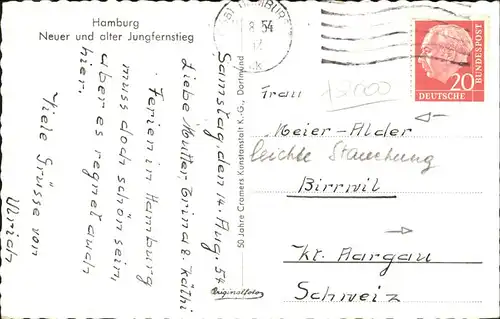 Hamburg
Neuer und alter Jungfernstieg
HAMBURG
8. 54
12
20
DEUTSCHE
BUNDESPOST
Samstag, den 14. Aug. 54
Liebe Mutter, Trina & Käthi
Ferien in Hamburg
muss doch schön sein,
aber es regnet auch
hier.
Viele Grüsse von
Ulrich
50 Jahre Cramers Kunstanstalt K.-G., Dortmund
Originalfoto
Frau
Meier-Alder
leichte Stauchung
Birrwil
Kt. Aargau
Schweiz